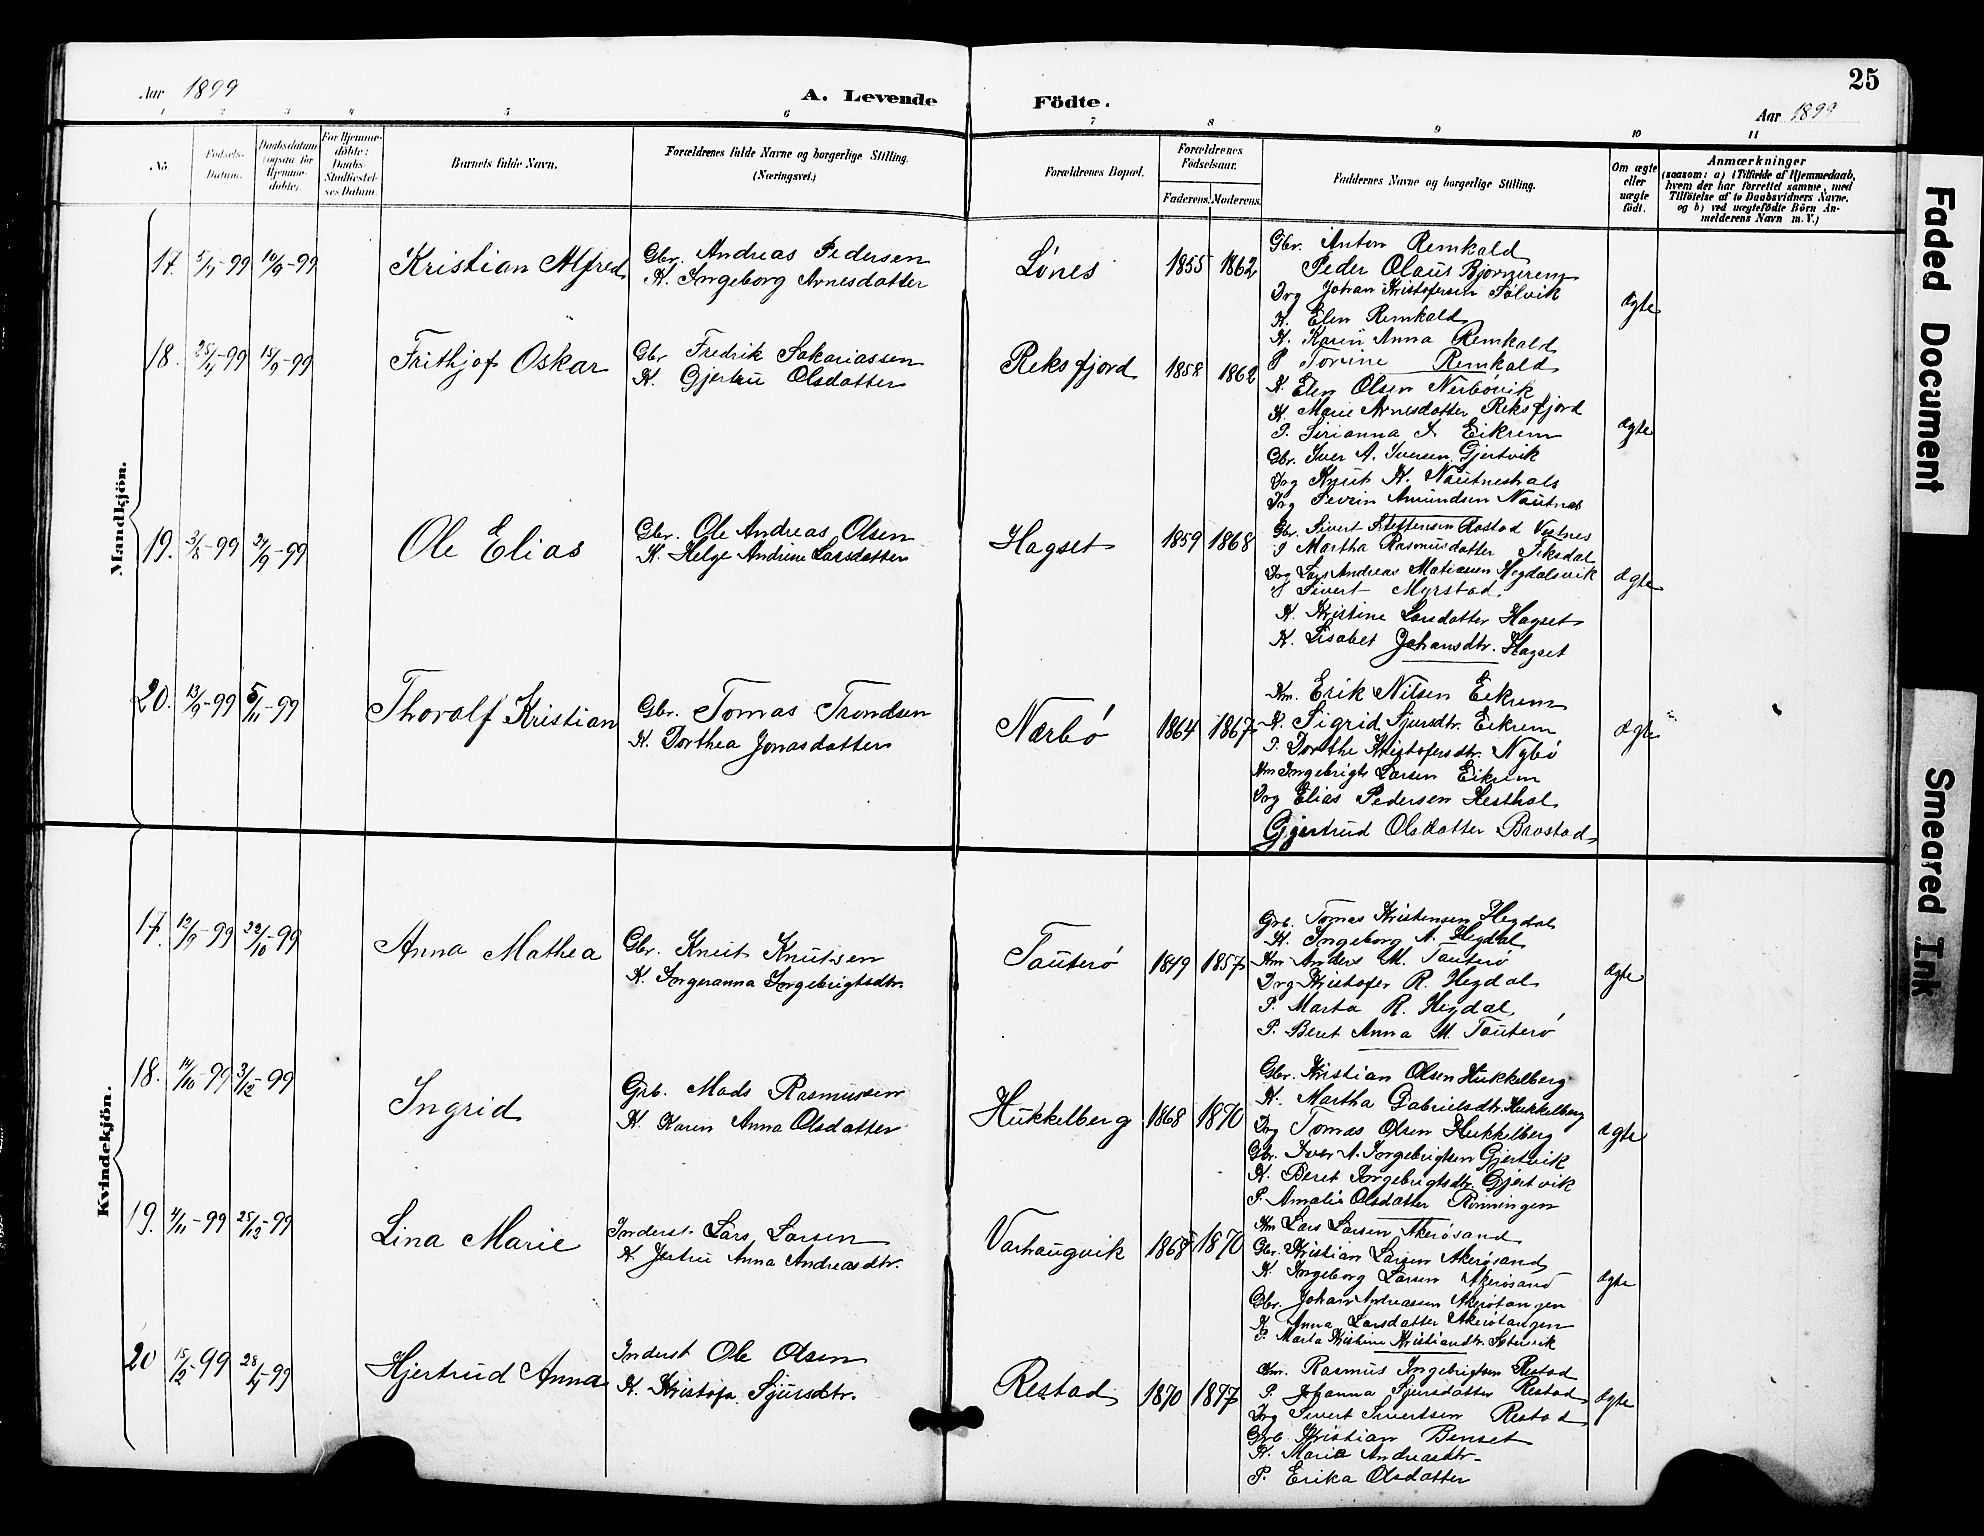 25
Aar 1899
A. Levende Födte.
Aar 1899
1 2 3 4 5 6 7 8 9 10 11
No.
Födsels-
Datum.
Daabsdatum
(ogsaa for
Hjemme-
döbte).
For Hjemme-
döbte:
Daabs-
Stadfæstel-
ses Datum.
Barnets fulde Navn.
Forældrenes fulde Navne og borgerlige Stilling.
(Næringsvei.)
Forældrenes Bopæl.
Forældrenes
Födselsaar.
Faderens. Moderens.
Faddernes Navne og borgerlige Stilling.
Om ægte
eller
uægte
födt.
Anmærkninger
(saasom: a) i Tilfælde af Hjemmedaab,
hvem der har forrettet samme, med
Tilföielse af to Daabsvidners Navne.
og b) ved uægtefödte Börn An-
melderens Navn m. V.)
Mandkjön.
17. -99 10/9-99
Kristian Alfred
Gbr. Andreas Pedersen
K. Ingeborg Arnesdatter
Lönes
1855 1862
Gbr. Anton Remkald
Peder Olaus Bjørnerem
Drg Johan Kristofersen Sølvik
K. Elen Remkald
K. Karen Anna Remkald
P Torine Remkald
ægte
18. -99 15/9-99
Frithjof Oskar
Gbr Fredrik Sakariassen
K. Gjertru Olsdatter
Reksfjord
1858 1862
K. Elen Olsen Nerbövik
K. Marie Arnesdatter Reksfjord
P. Sirianna I. Eikrem
Gbr. Iver A. Iversen Gjertvik
Drg Knut K. Nautneshals
Drg Severin Amundsen Nautnes
ægte
19. 3/8-99 24/9-99
Ole Elias
Gbr. Ole Andreas Olsen
K. Helge Andrine Larsdatter
Hagset
1859 1868
Gbr. Sivert Steffensen Rostad Vestnes
P Martha Rasmusdatter
Drg Lars Andreas Matiasen Hegdalsvik
Sivert Myrstad
K. Kristine Larsdatter Hagset
K. Lisabet Johansdtr. Hagset
ægte
20. 13/9-99 5/11-99
Thoralf Kristian
Gbr. Tomas Trondsen
K. Dorthea Jonasdatter
Nærbö
1864 1867
Km. Erik Nilsen Eikrem
K. Sigrid Sjursdtr. Eikrem
P. Dorthe Kristofersdtr. Nybö
Km Ingebrigt Larsen Eikrem
Drg Elias Pedersen Hesthol
Gjertrud Olsdatter Brastad
ægte
Kvindekjön.
17. 12/9-99 22/10-99
Anna Mathea
Gbr. Knut Knutsen
K. Ingeranna Ingebrigtsdtr.
Tauterö
1849 1857
Grb. Tomas Kristensen Hegdal
K. Ingeborg A. Hegdal
Km Anders M. Tauterö
Drg Kristofer R. Hegdal
P. Marta R. Hegdal
P. Beret Anna M. Tauterö
ægte
18. 14/10-99 3/12-99
Ingrid
Grb. Mads Rasmussen
K. Karen Anna Olsdatter
Hukkelberg
1868 1870
Gbr. Kristian Olsen Hukkelberg
K. Martha Gabrielsdtr. Hukkelberg
Drg Tomas Olsen Hukkelberg
Gbr. Iver A. Ingebrigtsen Gjertvik
K. Beret Ingebrigtsdtr. Gjertvik
P. Amalie Olsdatter Rönningen
ægte
19. 4/11-99 25/12-99
Lina Marie
Inderst. Lars Larsen
K Jertru Anna Andreasdtr.
Varhaugvik
1868 1870
Km Lars Larsen Akerösand
Gbr. Kristian Larsen Akerösand
K Ingeborg Larsen Akerösand
Gbr. Johan Andreassen Akerötangen
K Anna Larsdatter Akerötangen
P. Marta Kristine Kristiansdtr.
ægte
20 15/2-99 28/4-99
Hjertrud Anna
Inderst Ole Olsen
K. Kristofa Sjursdtr.
Restad
1870 1877
Km. Rasmus Ingebrigtsen Restad
P. Johanna Sjursdatter Restad
Drg Sivert Sivertsen Restad
Grb Kristian Benset
K. Marie Andreasdtr-
P. Erika Olsdatter
ægte
Faded Document
Smeared Ink